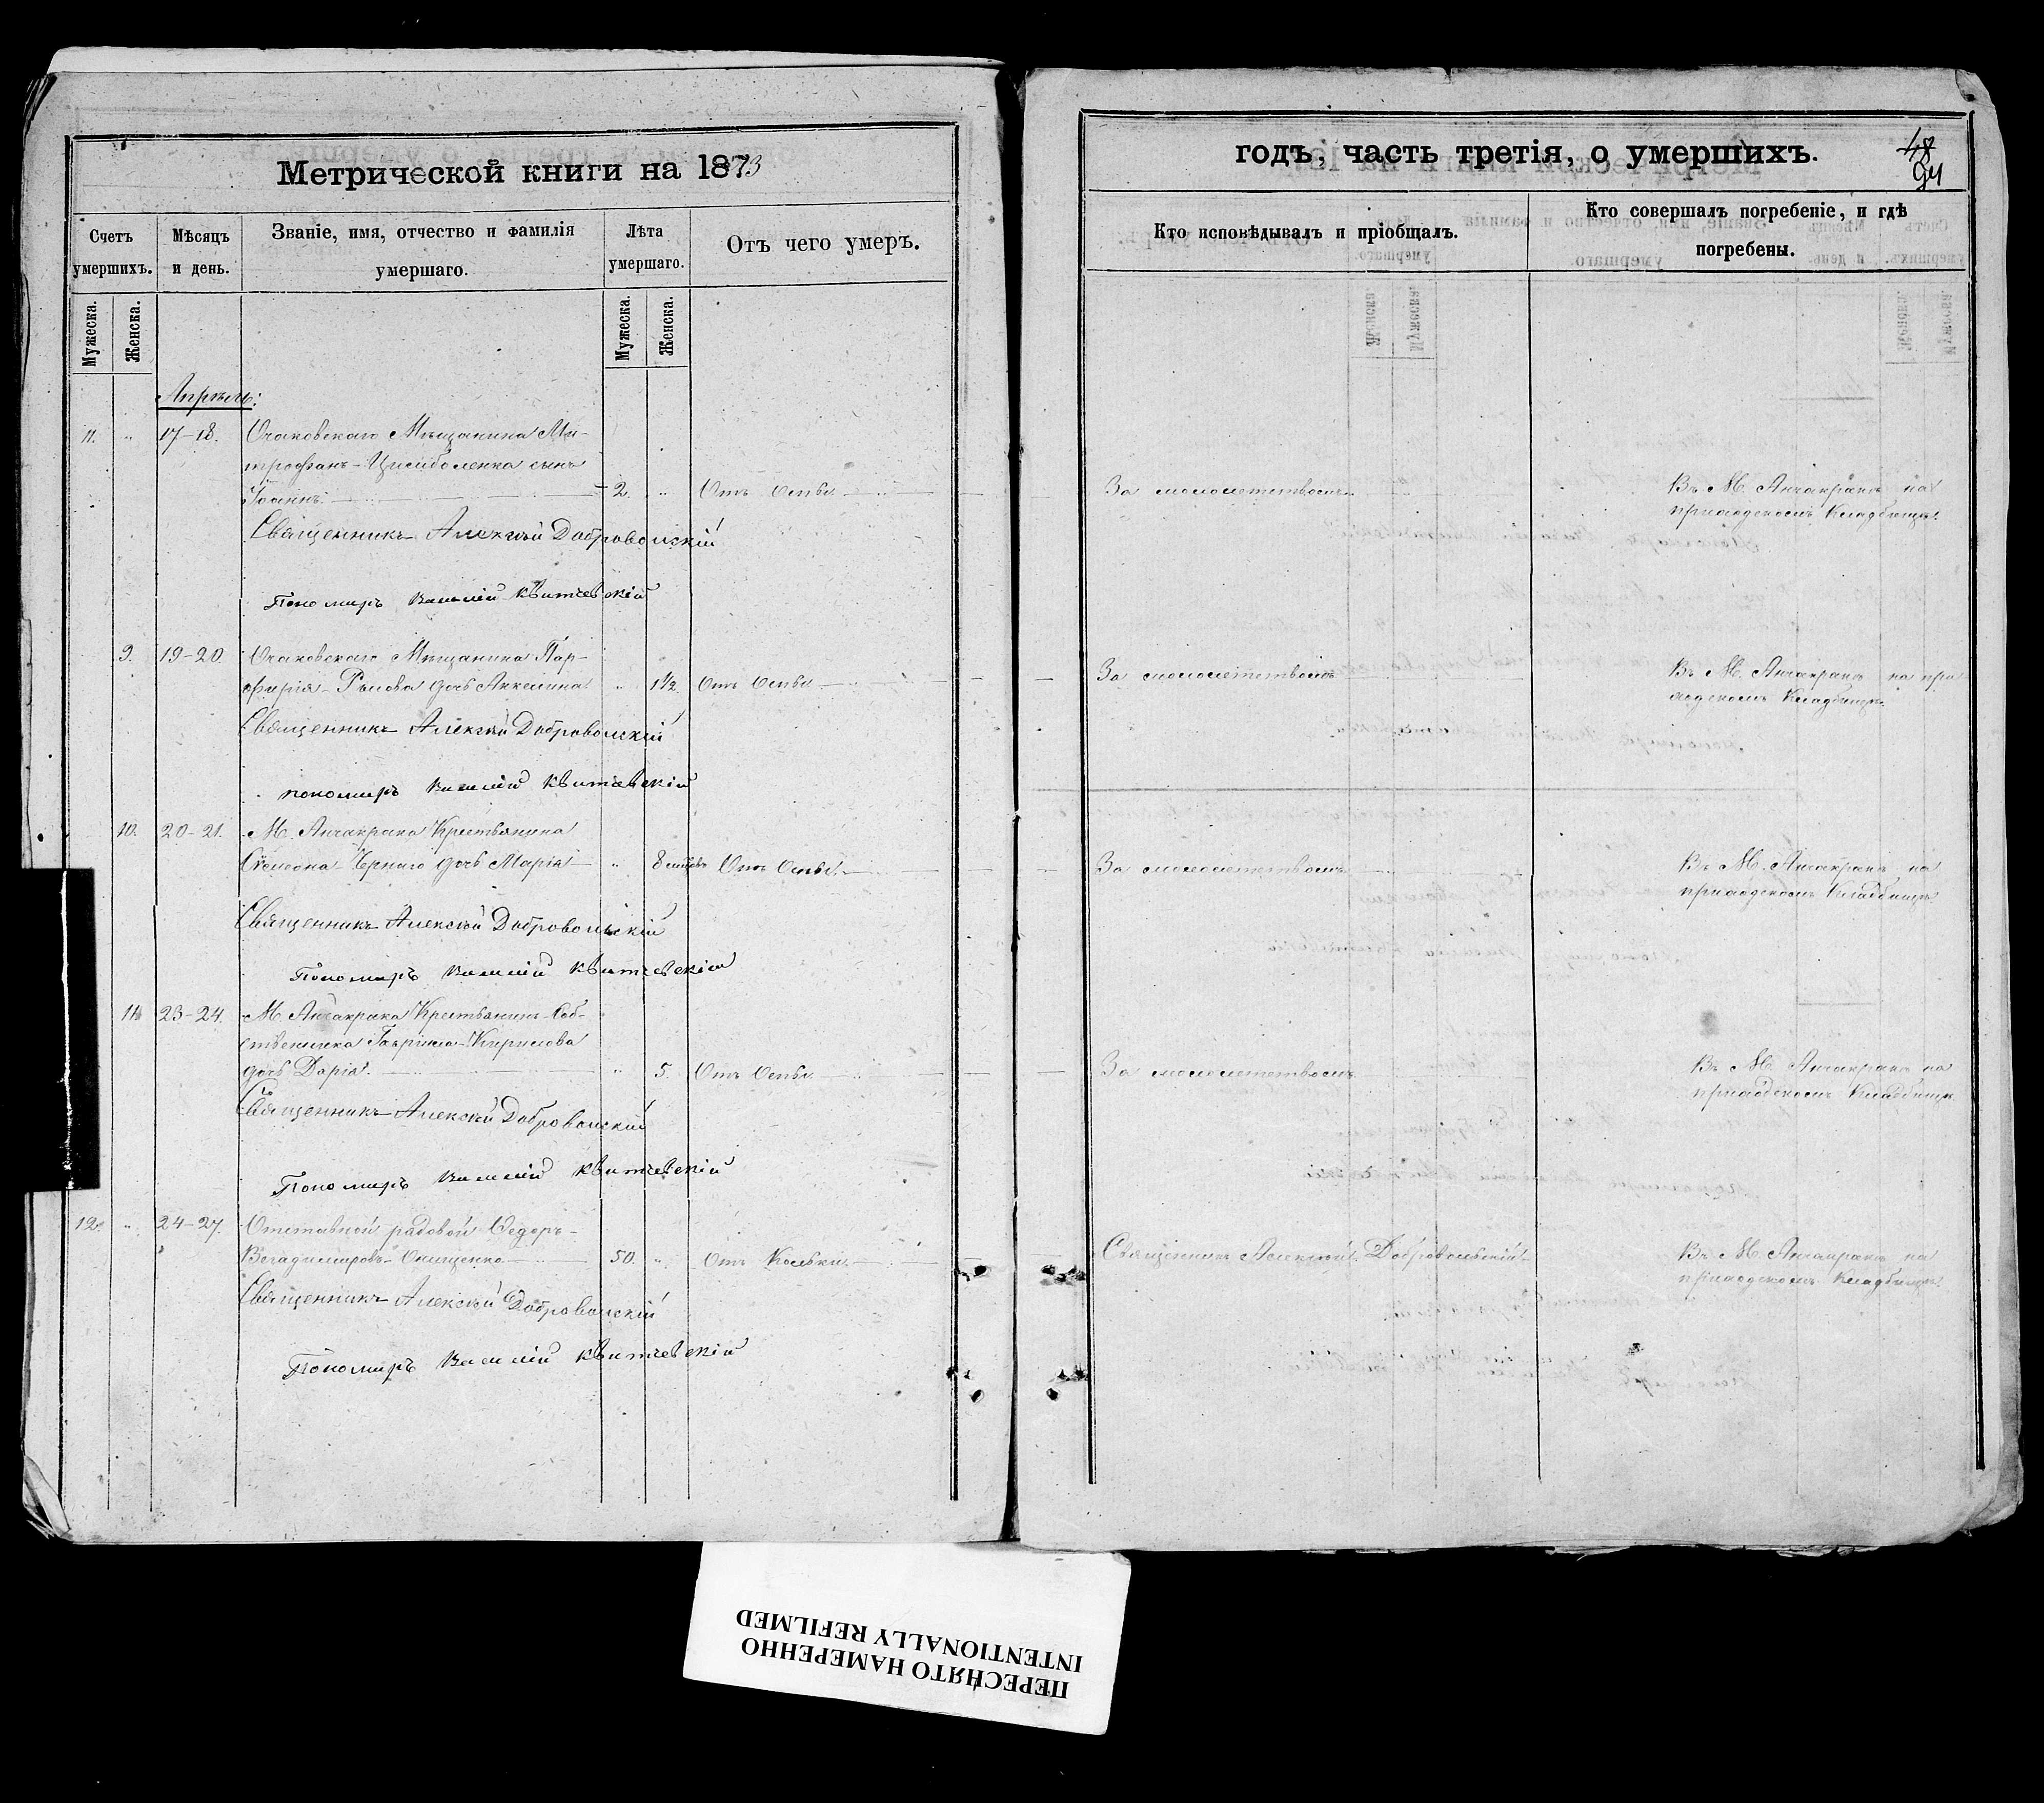 Метрической книги на 1873
Счетъ умершихъ.
Мѣсяцъ и день.
Званіе, имя, отчество и фамилія умершаго.
Лѣта умершаго.
Отъ чего умеръ.
Мужеска.
Женска.
Мужеска.
Женска.
Апрѣль:
11. " 17-18. Очаковскаго Мѣщанина Ми-
трофана сынъ
Іоаннъ 2. " Отъ Оспы
Священникъ Алексѣй Добровольскій
Пономарь Василій Квитчевскій
9. 19-20. Очаковскаго Мѣщанина Пар-
фирія дочь Аккелина " 1 1/2 Отъ Оспы
Священникъ Алексѣй Добровольскій
пономарь Василій Квитчевскій
10. 20-21. М. Анчакрака Крестьянина
Симеона Чернаго дочь Марія " 8 Отъ Оспы
Священникъ Алексѣй Добровольскій
Пономарь Василій Квитчевскій
11 23-24. М. Анчакрака Крестьянина Соб-
ственника Гавріила Кирилова
дочь Дарія. " 5. Отъ Оспы
Священникъ Алексѣй Добровольскій
Пономарь Василій Квитчевскій
12. " 24-27. Отставной рядовой Ѳедоръ
Владиміровъ Онищенко 50. " Отъ Кольки
Священникъ Алексѣй Добровольскій
Пономарь Василій Квитчевскій
годъ, часть третія, о умершихъ.
48
94
Кто исповѣдывалъ и пріобщалъ.
Кто совершалъ погребеніе, и гдѣ
погребены.
За малолетствомъ
Въ М. Анчакракѣ на
приходскомъ Кладбищѣ.
За малолетствомъ
Въ М. Анчакракѣ на при
ходскомъ Кладбищѣ.
За малолетствомъ
Въ М. Анчакракѣ на
приходскомъ Кладбищѣ
За малолетствомъ
Въ М. Анчакракѣ на
приходскомъ Кладбищѣ
Священникъ Алексѣй Добровольскій
Въ М. Анчакракѣ на
приходскомъ Кладбищѣ
ПЕРЕСНЯТО НАМЕРЕННО
INTENTIONALLY REFILMED